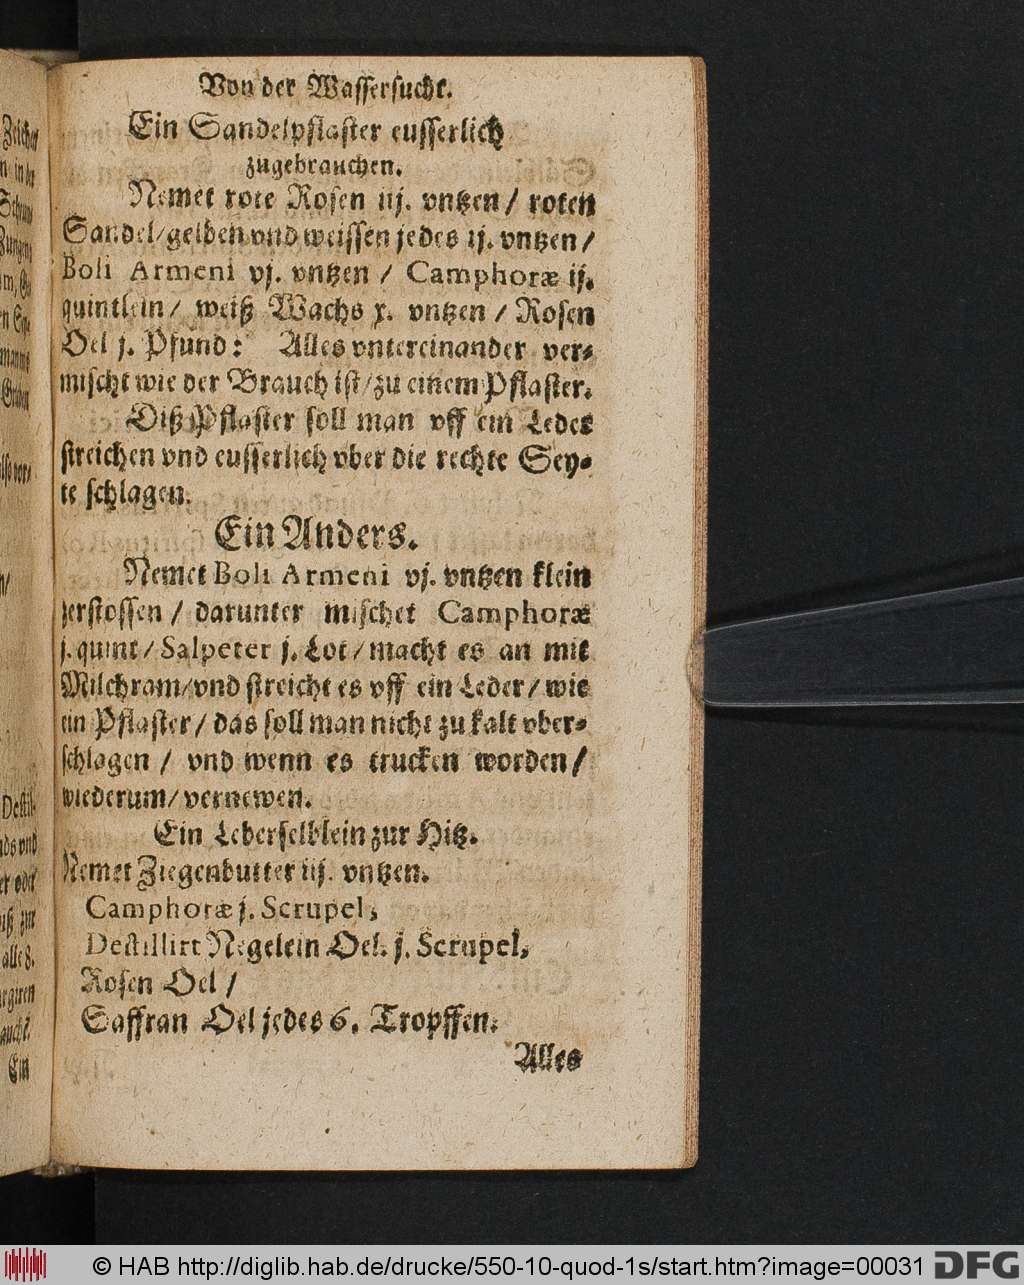 Von der Wassersucht.
Ein Sandelpflaster eusserlich
zugebrauchen.
Nemet rote Rosen iij. vntzen / roten
Sandel / gelben vnd weissen jedes ij. vntzen /
Boli Armeni vj. vntzen / Camphoræ ij.
quintlein / weiß Wachs x. vntzen / Rosen
Oel j. Pfund: Alles vntereinander ver-
mischt wie der Brauch ist / zu einem Pflaster.
Diß Pflaster soll man vff ein Leder
streichen vnd eusserlich vber die rechte Sey-
te schlagen.
Ein Anders.
Nemet Boli Armeni vj. vntzen klein
zerstossen / darunter mischet Camphoræ
j. quint / Salpeter j. Lot / macht es an mit
Milchram / vnd streicht es vff ein Leder / wie
ein Pflaster / das soll man nicht zu kalt vber-
schlagen / vnd wenn es trucken worden /
wiederum / vernewen.
Ein Leberselblein zur Hitz.
Nemet Ziegenbutter iij. vntzen.
Camphoræ j. Scrupel,
Destillirt Negelein Oel. j. Scrupel,
Rosen Oel /
Saffran Oel jedes 6. Tropffen.
Alles
© HAB http://diglib.hab.de/drucke/550-10-quod-1s/start.htm?image=00031
DFG